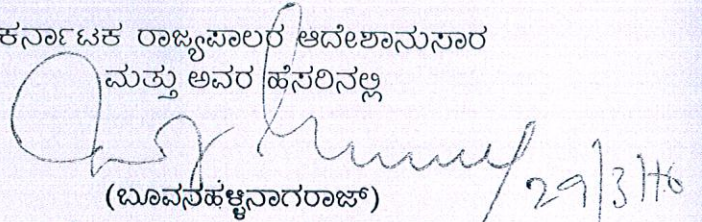 ಕರ್ನಾಟಕ ರಾಜ್ಯಪಾಲರ ಆದೇಶಾನುಸಾರ
ಮತ್ತು ಅವರ ಹೆಸರಿನಲ್ಲಿ
29/3/16
(ಬೂವನಹಳ್ಳಿನಾಗರಾಜ್)